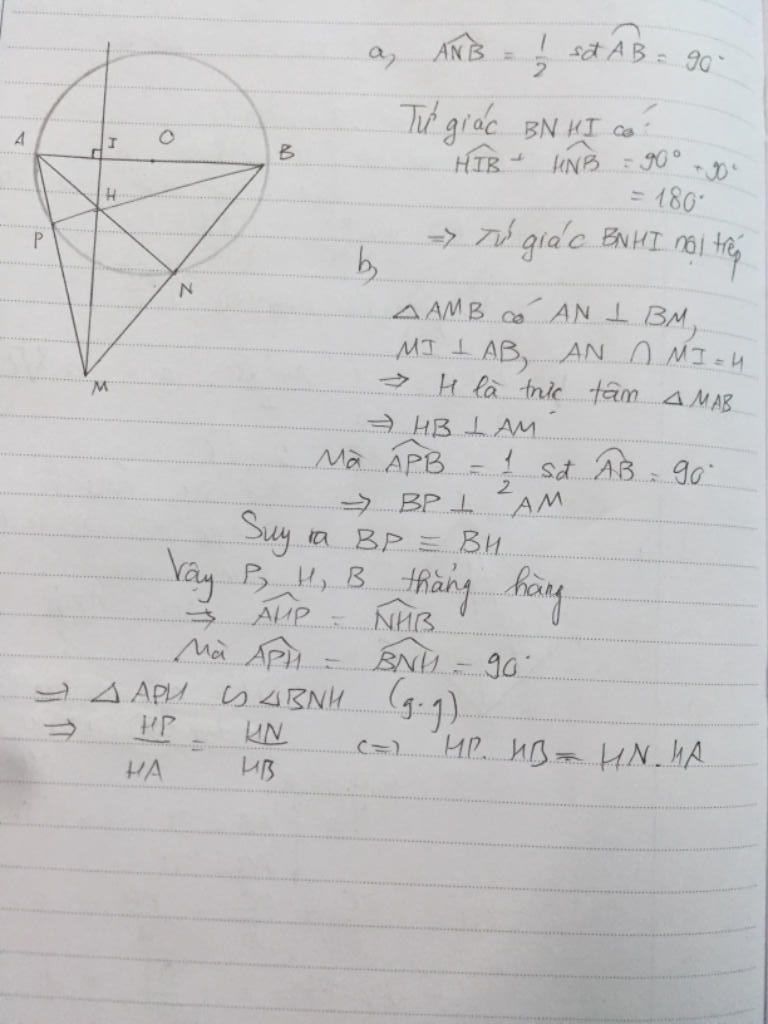 a, ANB = 1/2 sđ AB = 90°
Tứ giác BNHI có:
HIB + HNB = 90° + 90°
= 180°
=> Tứ giác BNHI nội tiếp
b,
△AMB có AN ⊥ BM,
MI ⊥ AB, AN ∩ MI = H
=> H là trực tâm △MAB
=> HB ⊥ AM
Mà APB = 1/2 sđ AB = 90°
=> BP ⊥ AM
Suy ra BP ≡ BH
Vậy P, H, B thẳng hàng
=> AHP = NHB
Mà APH = BNH = 90°
=> △APH ∽ △BNH (g.g)
=> HP/HA = HN/HB <=> HP. HB = HN. HA
A
I
O
B
H
P
N
M